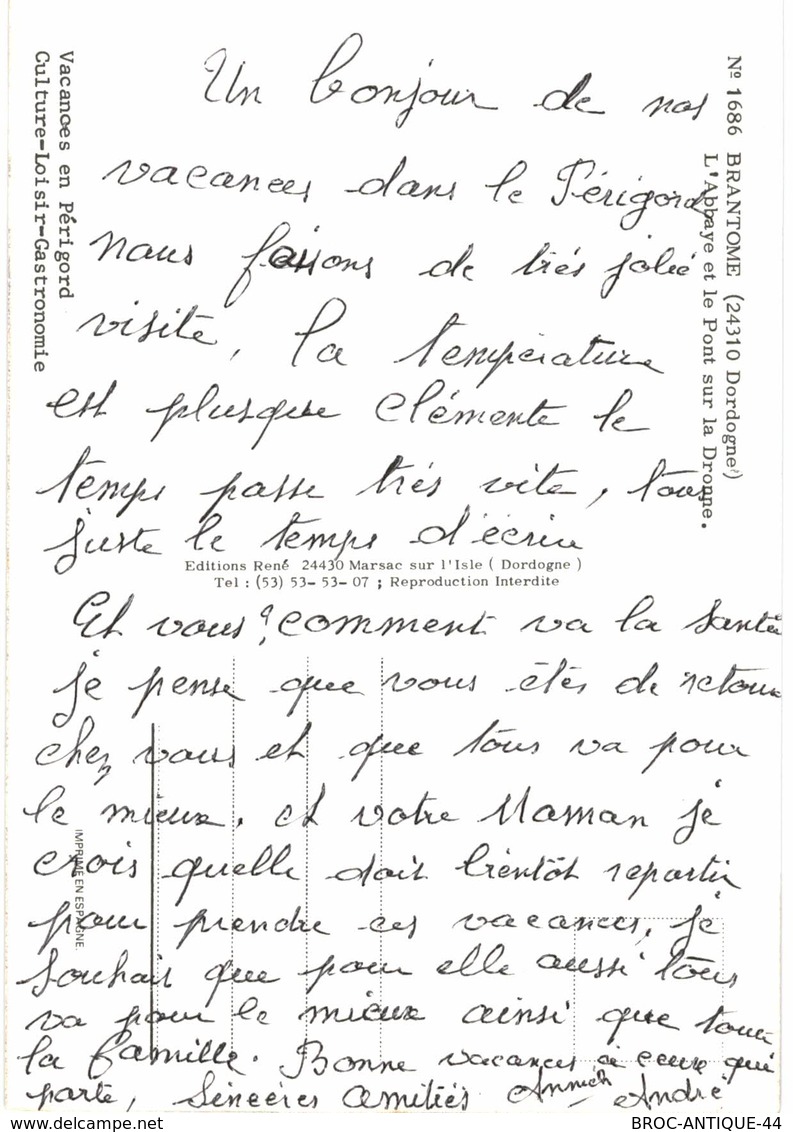 Un bonjour de nos
vacances dans le Périgord
nous faisons de trés jolie
visite, la température
est plusque clémente le
temps passe trés vite, tous
juste le temps d'écrire
Et vous ? comment va la santé
je pense que vous étés de retour
chez vous et que tous va pour
le mieux, et votre Maman je
crois quelle doit bientôt repartir
pour prendre ces vacances, je
souhait que pour elle aussi tous
va pour le mieux ainsi que toute
la famille. Bonne vacances à ceux qui
parte, Sincéres amitiés Annick André
Nº 1686 BRANTOME (24310 Dordogne)
L'Abbaye et le Pont sur la Dronne.
Vacances en Périgord
Culture-Loisir-Gastronomie
Editions René 24430 Marsac sur l'Isle ( Dordogne )
Tel : (53) 53-53-07 ; Reproduction Interdite
IMPRIME EN ESPAGNE.
BROC-ANTIQUE-44